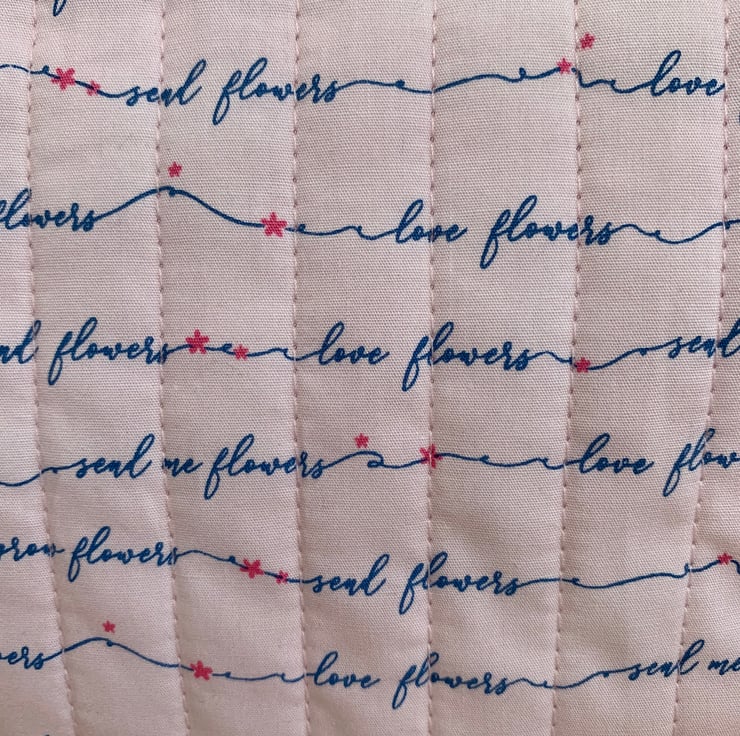 send flowers love
flowers love flowers
flowers love flowers send
send me flowers love
grow flowers send flowers
love flowers send me